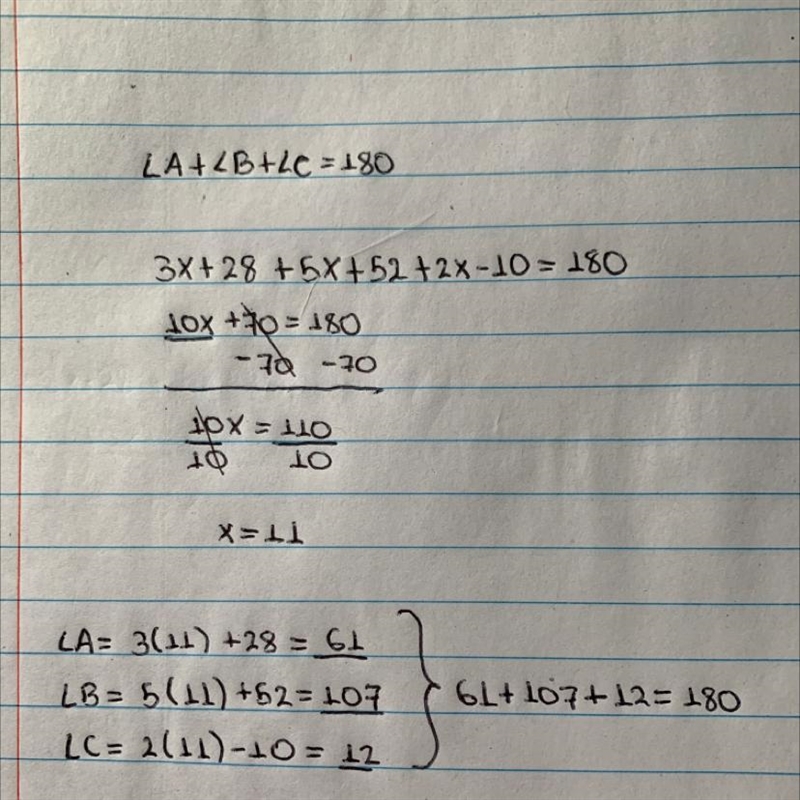 ∠A+∠B+∠C=180
3x+28+5x+52+2x-10=180
10x+70=180
-70 -70
10x = 110
10 10
x=11
∠A= 3(11)+28= 61
∠B= 5(11)+52=107
∠C= 2(11)-10= 12
61+107+12=180